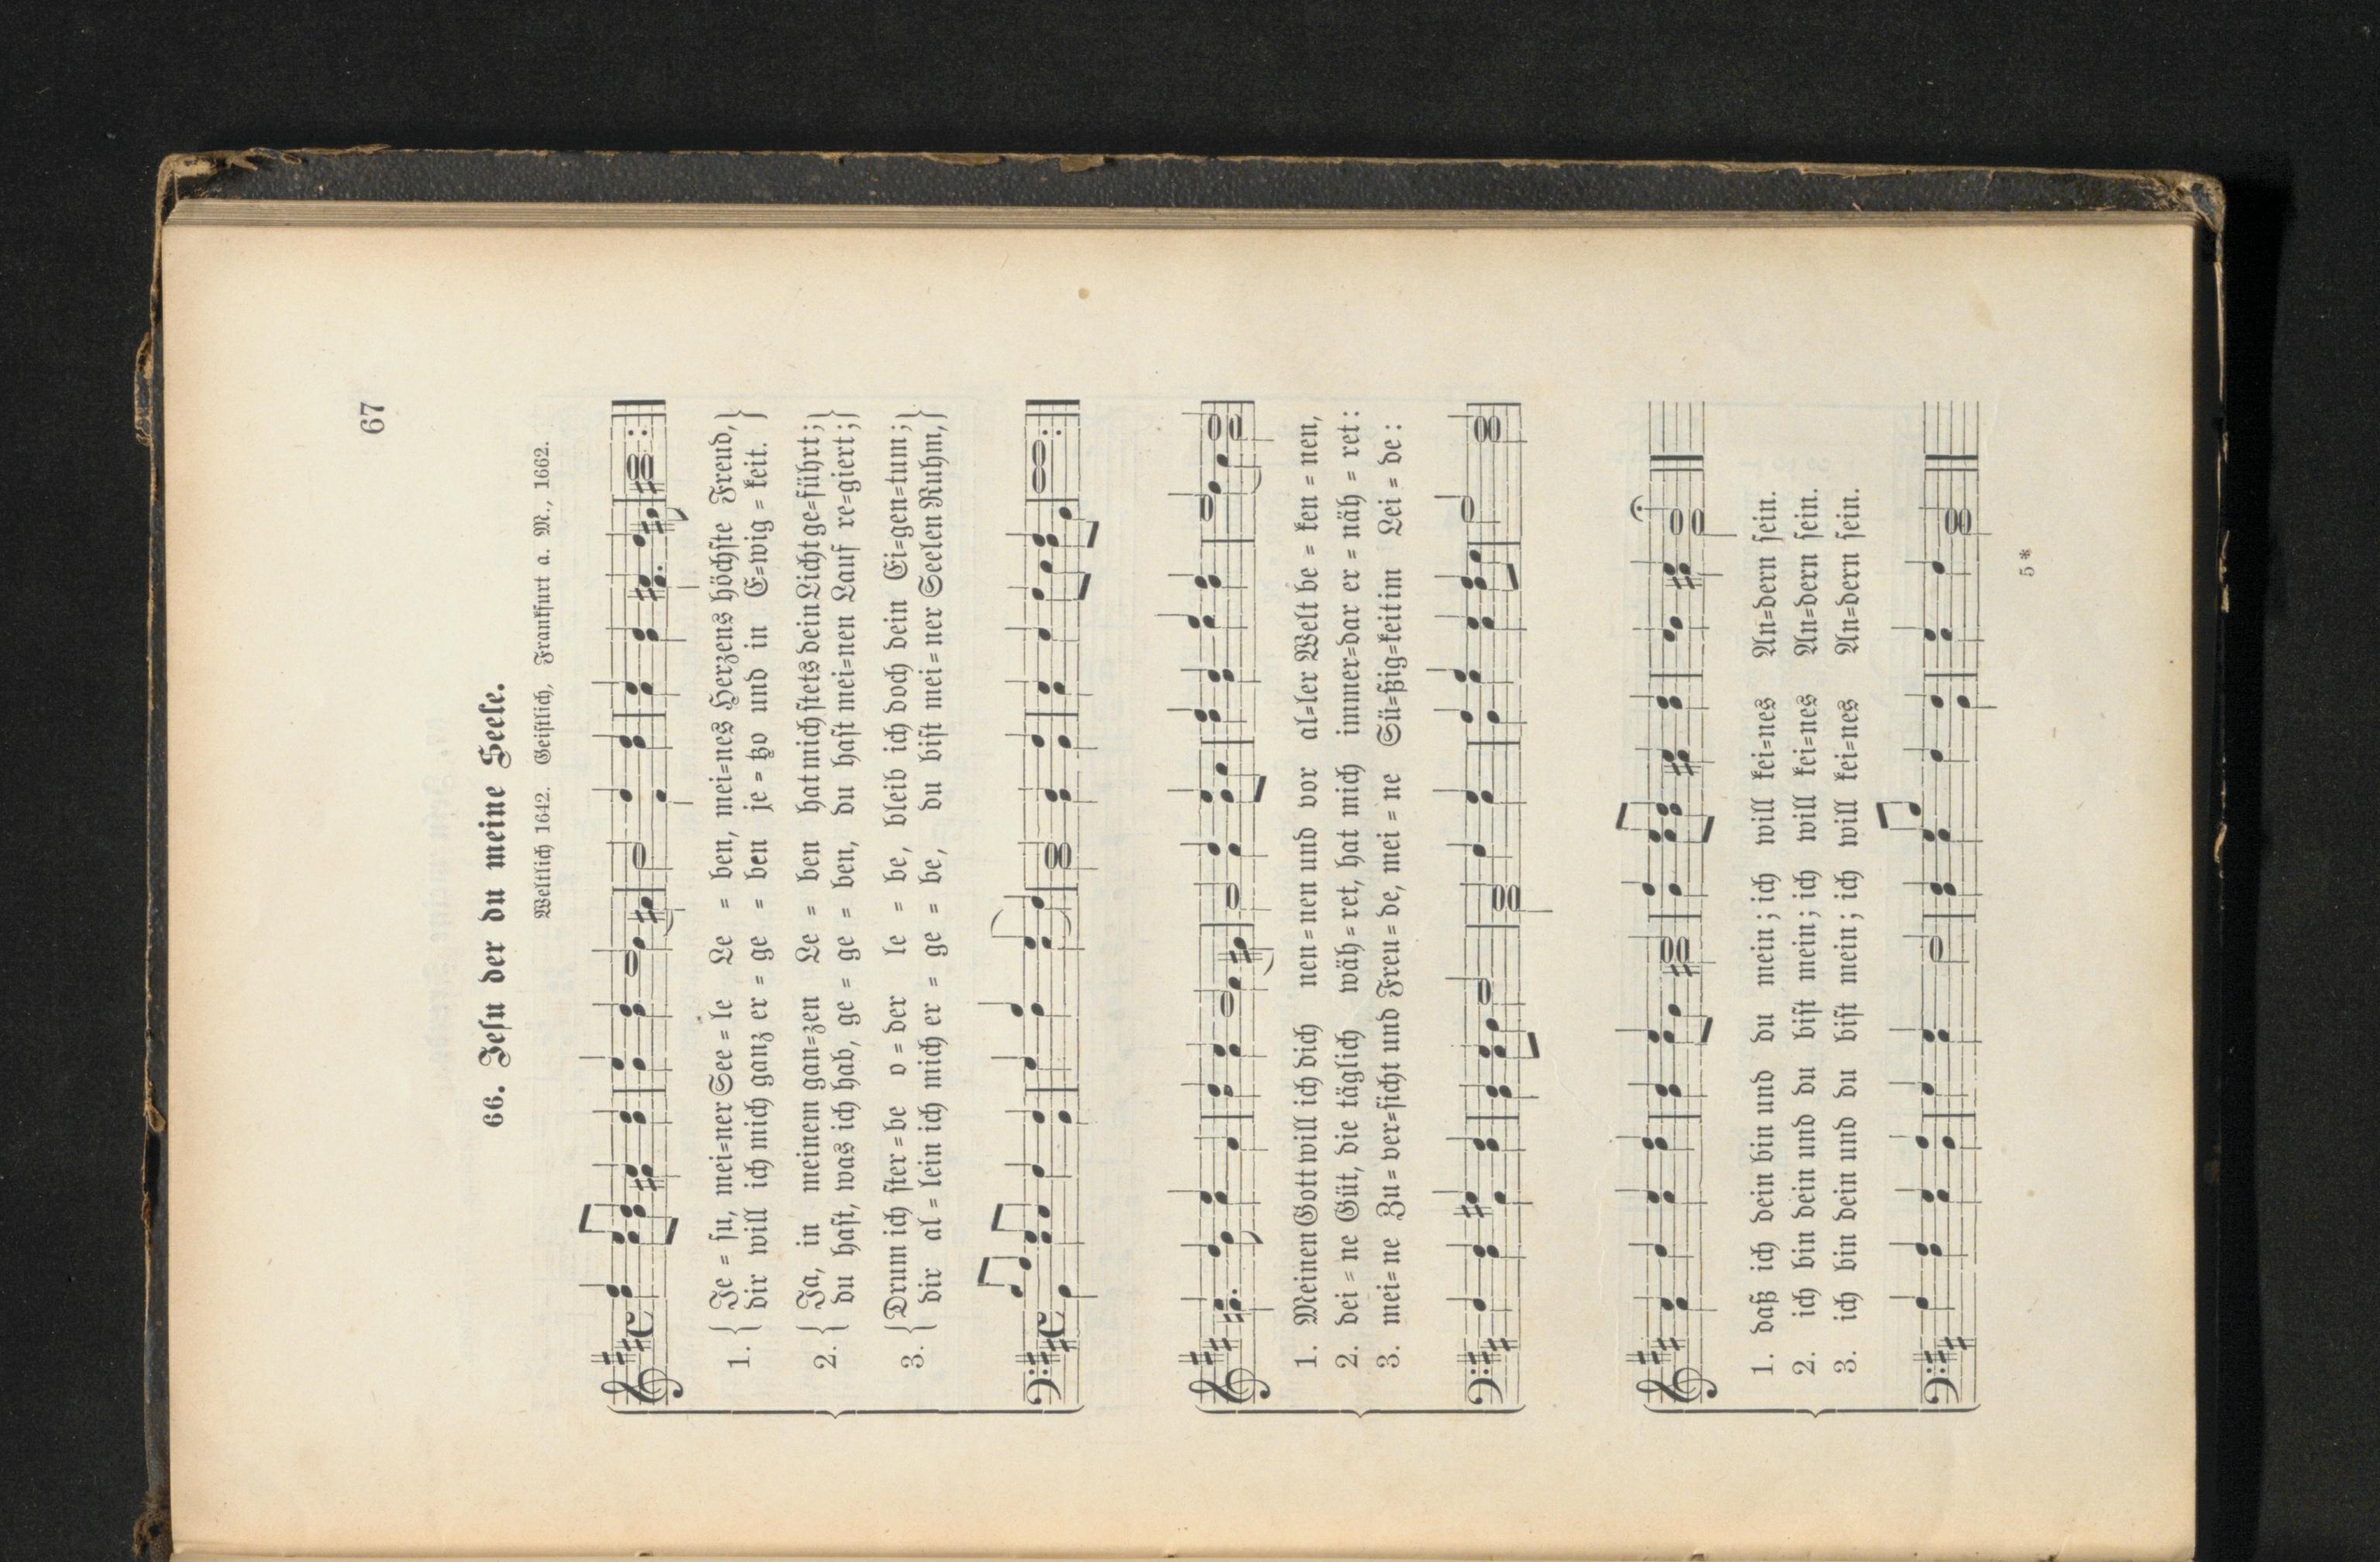 67
66. Jesu der du meine Seele.
Weltlich 1642. Geistlich, Frankfurt a. M., 1662.
1. { Je = su, mei=ner See = le Le = ben, mei=nes Herzens höchste Freud, }
dir will ich mich ganz er = ge = ben je = tzo und in E=wig = keit. }
2. { Ja, in meinem gan=zen Le = ben hat mich stets dein Licht ge=führt; }
du hast, was ich hab, ge = ge = ben, du hast mei=nen Lauf re=giert; }
3. { Drum ich ster=be o = der le = be, bleib ich doch dein Ei=gen=tum; }
dir al = lein ich mich er = ge = be, du bist mei=ner Seelen Ruhm, }
1. Meinen Gott will ich dich nen=nen und vor al=ler Welt be = ken = nen,
2. dei = ne Güt, die täglich wäh = ret, hat mich immer=dar er = näh = ret:
3. mei= ne Zu = ver=sicht und Freu = de, mei = ne Sü=ßig=keit im Lei = de:
1. daß ich dein bin und du mein; ich will kei=nes An=dern sein.
2. ich bin dein und du bist mein; ich will kei=nes An=dern sein.
3. ich bin dein und du bist mein; ich will kei=nes An=dern sein.
5*